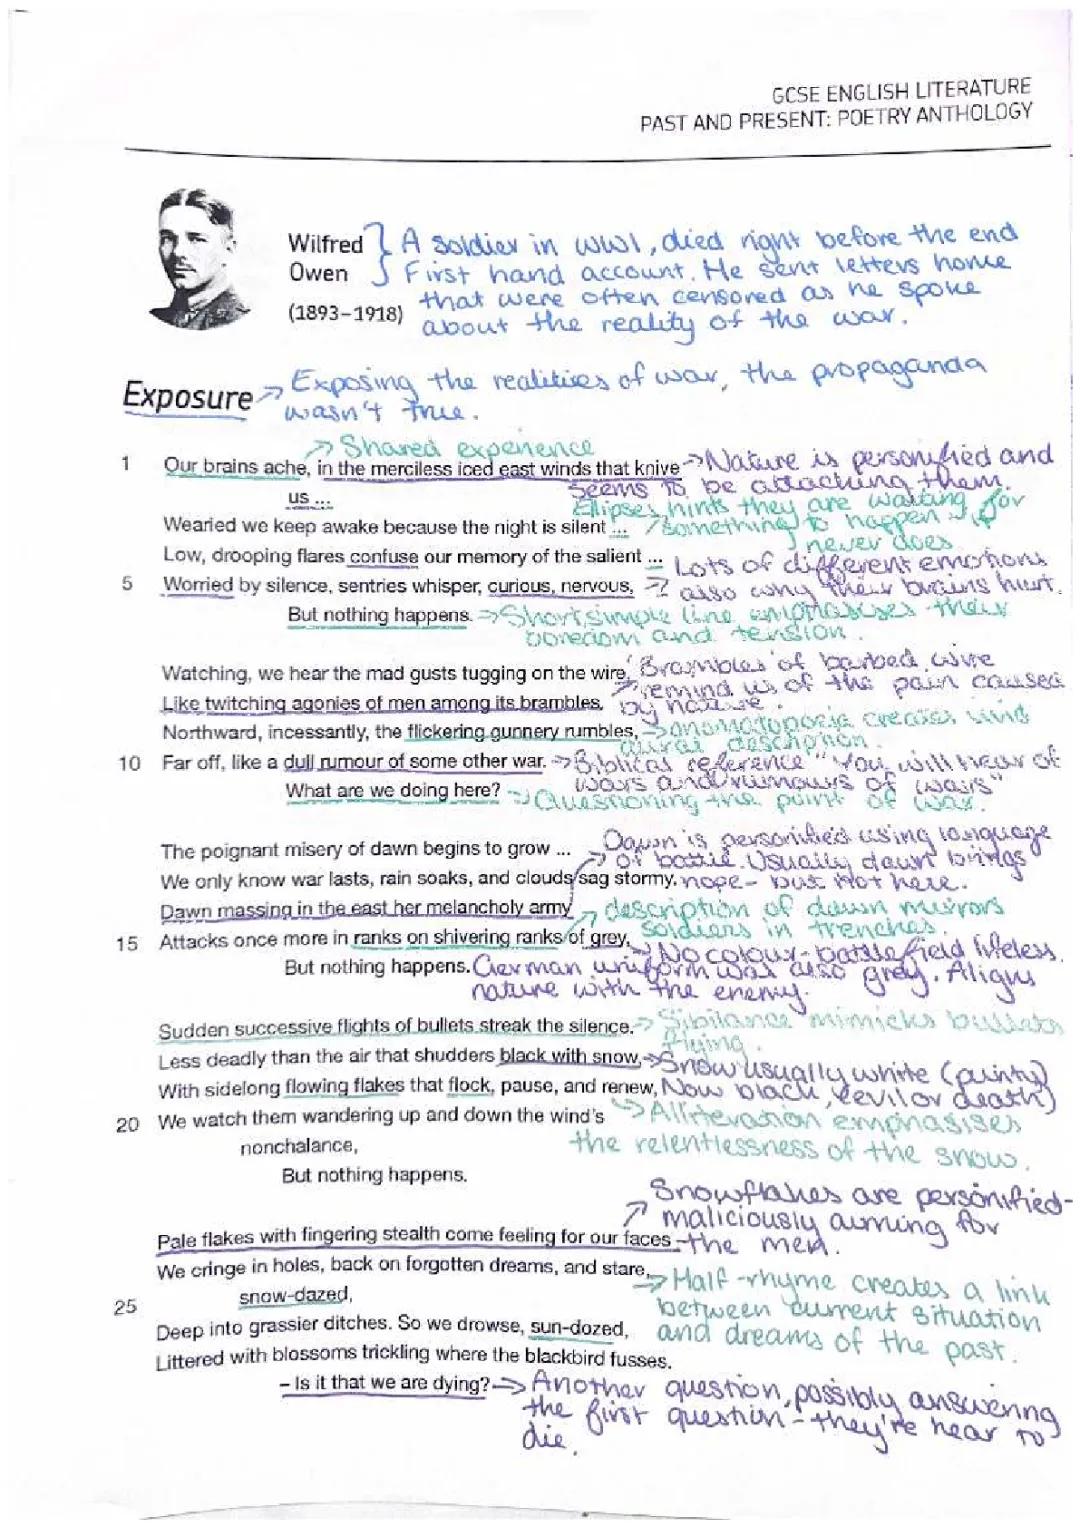 GCSE ENGLISH LITERATURE
PAST AND PRESENT: POETRY ANTHOLOGY
Wilfred
Owen
(1893–1918)
A soldier in WW1, died right before the end
First hand account. He sent letters home
that were often censored as he spoke
about the reality of the war.
Exposure
Exposing the realities of war, the propaganda
wasn't true.
Shared experience
1 Our brains ache, in the merciless iced east winds that knive
us ...
Nature is personified and
seems to be attacking them.
Ellipses hints they are waiting for
something to happen - it
never does
Wearied we keep awake because the night is silent ...
Low, drooping flares confuse our memory of the salient ...
Lots of different emotions
also why their brains hurt.
5 Worried by silence, sentries whisper, curious, nervous,
But nothing happens.
Short simple line emphasises their
boredom and tension.
Watching, we hear the mad gusts tugging on the wire,
Like twitching agonies of men among its brambles.
'Brambles' of barbed wire
remind us of the pain caused
by nature.
Northward, incessantly, the flickering gunnery rumbles,
onomatopoeia creates vivid
aural description.
10 Far off, like a dull rumour of some other war.
Biblical reference "You will hear of
wars and rumours of wars"
What are we doing here?
Questioning the point of war.
The poignant misery of dawn begins to grow ...
Dawn is personified using language
of battle. Usually dawn brings
hope - but not here.
We only know war lasts, rain soaks, and clouds sag stormy.
Dawn massing in the east her melancholy army
description of dawn mirrors
soldiers in trenches.
15 Attacks once more in ranks on shivering ranks of grey,
No colour - battlefield lifeless.
But nothing happens.
German uniform was also grey. Aligns
nature with the enemy.
Sudden successive flights of bullets streak the silence.
Sibilance mimicks bullets
flying.
Less deadly than the air that shudders black with snow,
Snow usually white (purity)
Now black (evil or death)
With sidelong flowing flakes that flock, pause, and renew,
Alliteration emphasises
the relentlessness of the snow.
20 We watch them wandering up and down the wind's
nonchalance,
But nothing happens.
Snowflakes are personified-
maliciously aiming for
the men.
Pale flakes with fingering stealth come feeling for our faces –
We cringe in holes, back on forgotten dreams, and stare,
snow-dazed,
Half-rhyme creates a link
between current situation
and dreams of the past.
25
Deep into grassier ditches. So we drowse, sun-dozed,
Littered with blossoms trickling where the blackbird fusses.
– Is it that we are dying?
Another question, possibly answering
the first question - they're near to
die.